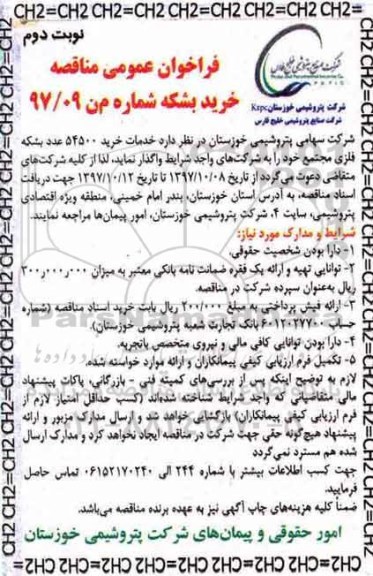 CH2=CH2 CH2=CH2 CH2=CH2 CH2=CH2 CH2=CH2 CH2=CH2
نوبت دوم
شرکت صنایع پتروشیمی خلیج فارس
شرکت پتروشیمی خوزستان Kzpc
شرکت صنایع پتروشیمی خلیج فارس
فراخوان عمومی مناقصه
خرید بشکه شماره م‌ن ۹۷/۰۹
شرکت سهامی پتروشیمی خوزستان در نظر دارد خدمات خرید ۵۴۵۰۰ عدد بشکه
فلزی مجتمع خود را به شرکت‌های واجد شرایط واگذار نماید، لذا از کلیه شرکت‌های
متقاضی دعوت می‌گردد از تاریخ ۱۳۹۷/۱۰/۰۸ تا تاریخ ۱۳۹۷/۱۰/۱۲ جهت دریافت
اسناد مناقصه، به آدرس استان خوزستان، بندر امام خمینی، منطقه ویژه اقتصادی
پتروشیمی، سایت ۴، شرکت پتروشیمی خوزستان، امور پیمان‌ها مراجعه نمایند.
شرایط و مدارک مورد نیاز:
۱- دارا بودن شخصیت حقوقی.
۲- توانایی تهیه و ارائه یک فقره ضمانت نامه بانکی معتبر به میزان ۳۰۰ر۰۰۰ر۰۰۰
ریال به‌عنوان سپرده شرکت در مناقصه.
۳- ارائه فیش پرداختی به مبلغ ۲۰۰/۰۰۰ ریال بابت خرید اسناد مناقصه (شماره
بانک تجارت شعبه پتروشیمی خوزستان).
۴- دارا بودن توانایی کافی مالی و نیروی متخصص باتجربه.
۵- تکمیل فرم ارزیابی کیفی پیمانکاران و ارائه موارد خواسته شده.
لازم به توضیح اینکه پس از بررسی‌های کمیته فنی - بازرگانی، پاکات پیشنهاد
مالی متقاضیانی که واجد شرایط شناخته شده‌اند (کسب حداقل امتیاز لازم از
فرم ارزیابی کیفی پیمانکاران) بازگشایی خواهد شد و ارسال مدارک مزبور و ارائه
پیشنهاد هیچ‌گونه حقی جهت شرکت در مناقصه ایجاد نخواهد کرد و مدارک ارسال
شده هم مسترد نمی‌گردد
جهت کسب اطلاعات بیشتر با شماره ۲۴۴ الی ۰۶۱۵۲۱۷۰۲۴۰ تماس حاصل
فرمایید.
ضمناً کلیه هزینه‌های چاپ آگهی نیز به عهده برنده مناقصه می‌باشد.
امور حقوقی و پیمان‌های شرکت پتروشیمی خوزستان
CH2=CH2 CH2=CH2 CH2=CH2 CH2=CH2 CH2=CH2 CH2=CH2